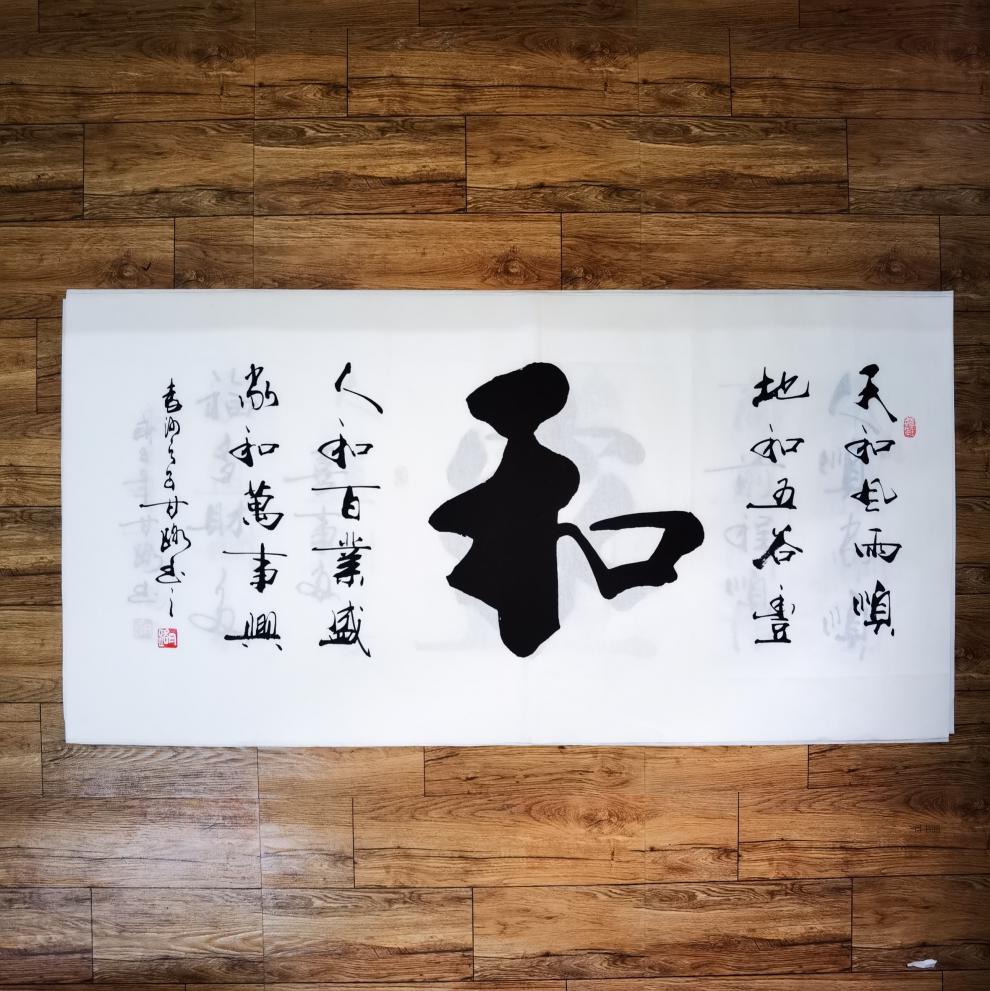 天和風雨順
地和五谷豊
和
人和百業盛
家和萬事興